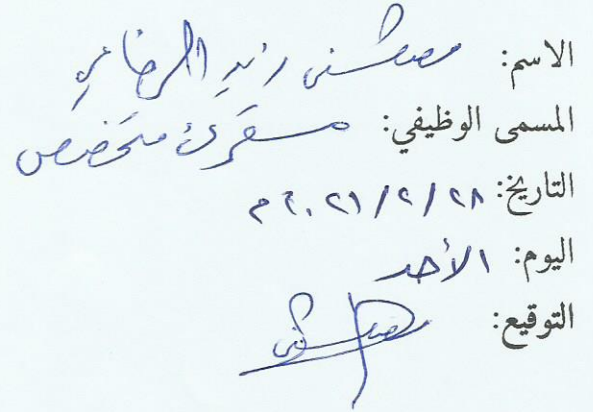 الاسم: مصطفى زيد الرفاعي
المسمى الوظيفي: متخصص
التاريخ: ٢٨/٢/٢٠٢١م
اليوم: الأحد
التوقيع: مصطفى